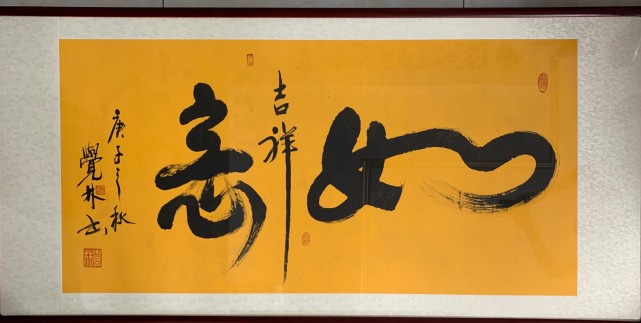 如意
吉祥
庚子之秋
覺林书